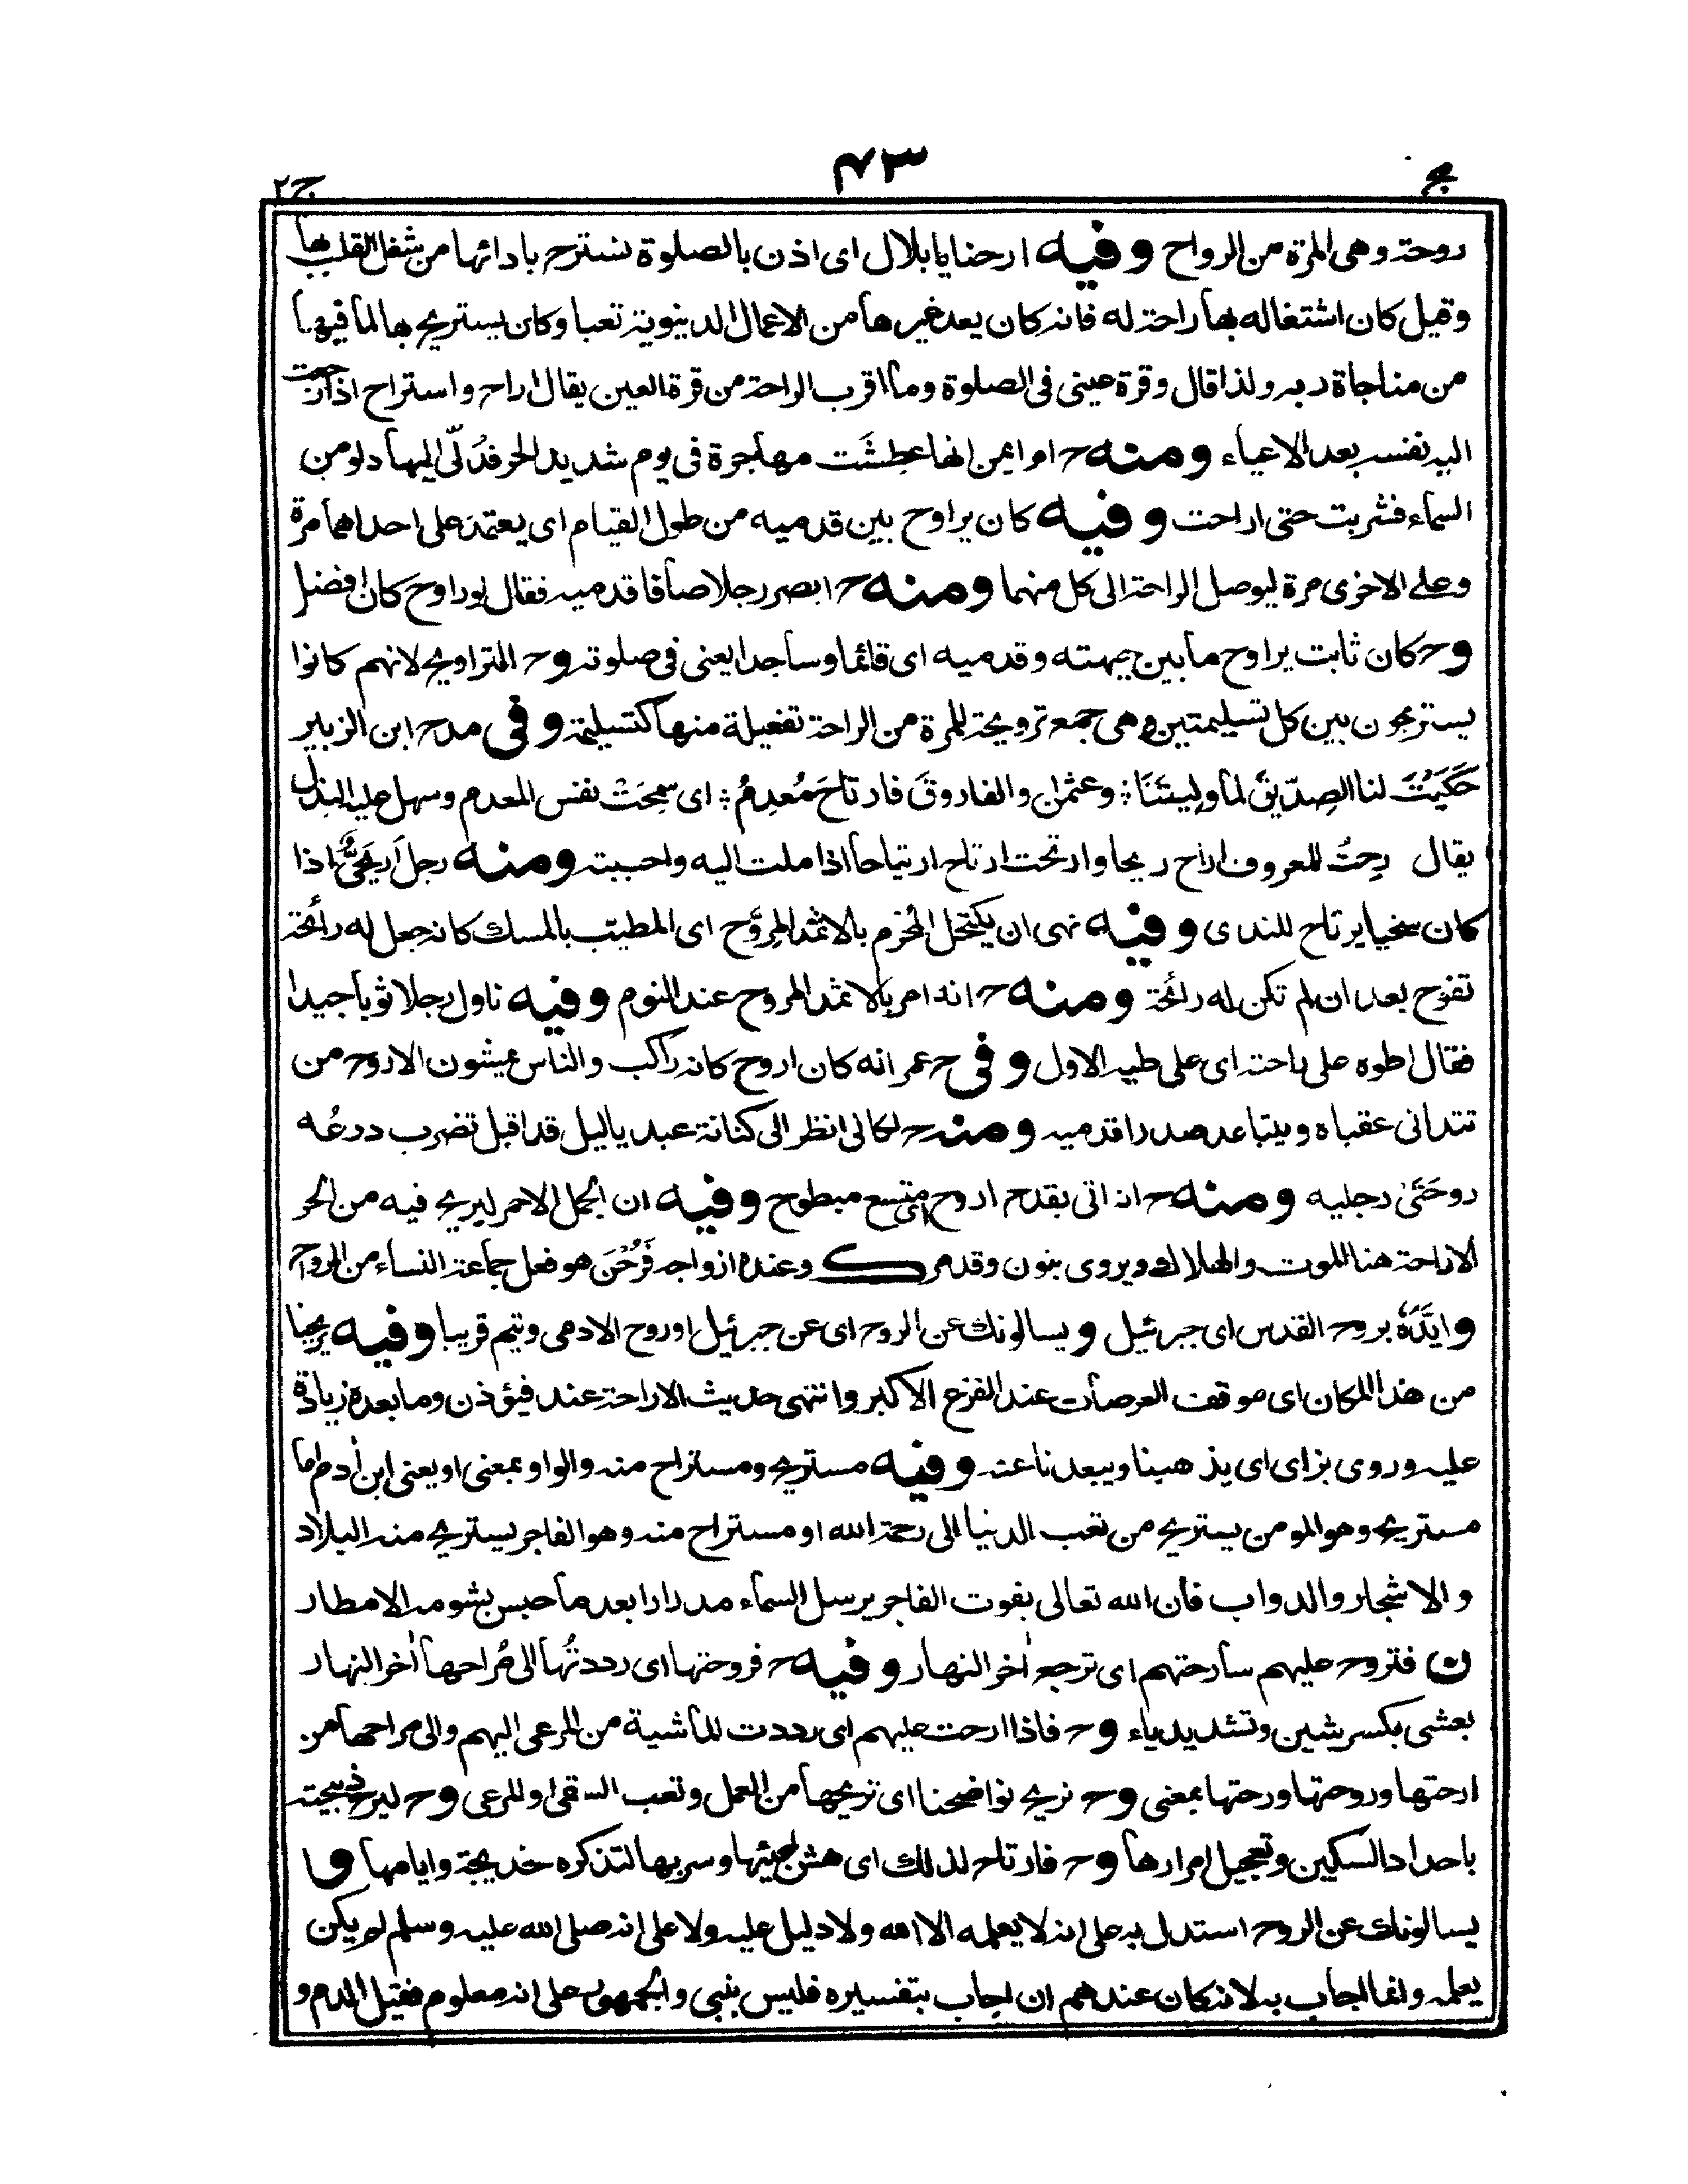 مج ٤٣ ج٢
روحة وهى المرة من الرواح وفيه ارحنا يا بلال اى اذن بالصلوة نسترح بادائها من شغل القلب بها
وقيل كان اشتغاله بها راحة له فانه كان يعد غيرها من الاعمال الدينوية تعبا وكان يستريح بها لما فيها
من مناجاة ربه ولذا قال وقرة عينى فى الصلوة وما اقرب الراحة من قرة العين يقال اراح واستراح اذا رجعت
اليه نفسه بعد الاعياء ومنه ح ام ايمن انها عطشَت مهاجرة فى يوم شديد الحر فدُلّى اليها دلو من
السماء فشربت حتى اراحت وفيه كان يراوح بين قدميه من طول القيام اى يعتمد على احداهما مرة
وعلى الاخرى مرة ليوصل الراحة الى كل منهما ومنه ح ابصر رجلا صافا قدميه فقال لو راوح كان افضل
وح كان ثابت يراوح ما بين جبهته وقدميه اى قائما وساجدا يعنى فى صلوته وح التراويح لانهم كانوا
يستريحون بين كل تسليمتين وهى جمع ترويحة للمرة من الراحة تفعيلة منها كتسليمة وفى مدح ابن الزبير
حَكَيْتَ لنا الصِدّيقَ لما وليتَنَا ؞ وعثمٰن والفاروقَ فارتاحَ مُعدِمُ ؞ اى سمحَتْ نفس المعدم وسهل عليه البذل
يقال رِحتُ للمعروف اراح ريحا وارتحت ارتاح ارتياحا اذا ملت اليه واحببته ومنه رجل اَريَحيٌّ اذا
كان سخيا يرتاح للندى وفيه نهى ان يكتحل المُحرم بالاثمد المروَّح اى المطيّب بالمسك كانه جعل له رائحة
تفوح بعد ان لم تكن له رائحة ومنه ح انه امر بالاثمد المروح عند النوم وفيه ناول رجلا ثوبا جيدا
فقال اطوه على راحته اى على طيه الاول وفى ح عمر انه كان اروح كانه راكب والناس يمشون الاروح من
تتدانى عقباه ويتباعد صدرا قدميه ومنه ح لكانى انظر الى كنانة عبد ياليل قد اقبل تضرب درعُه
روحَتَىْ رجليه ومنه ح انه اتى بقدح اروح اى متسع مبطوح وفيه ان الجمل الاحمر ليريح فيه من الحر
الاراحة هنا الموت والهلاك ويروى بنون وقد مر ك وعنده ازواجه فَرُحْنَ هو فعل جماعة النساء من الرواح
وايَّدَهُ بروح القدس اى جبرئيل ويسالونك عن الروح اى عن جبرئيل او روح الادمى ويتم قريبا وفيه يريحنا
من هذا المكان اى موقف العرصات عند الفزع الاكبر وانتهى حديث الاراحة عند فيؤذن وما بعده زيادة
عليه وروى بزاى اى يذهبنا ويبعدنا عنه وفيه مستريح ومستراح منه والواو بمعنى او يعنى ابن اٰدم اما
مستريح وهو المومن يستريح من تعب الدنيا الى رحمة الله او مستراح منه وهو الفاجر يستريح منه البلاد
والاشجار والدواب فان الله تعالى بفوت الفاجر يرسل السماء مدرارا بعد ما حبس بشومه الامطار
ن فتروح عليهم سارحتهم اى ترجع اٰخر النهار وفيه ح فروحتها اى رددتُها الى مُراحها اٰخر النهار
بعشى بكسر شين وتشديد ياء وح فاذا ارحت عليهم اى رددت الماشية من المرعى اليهم والى مراحها من
ارحتها وروحتها ورحتها بمعنى وح نريح نواضحنا اى نريحها من العمل وتعب السقى او للرعى وح ليرح ذبيحته
باحداد السكين وتعجيل امرارها وح فارتاح لذلك اى هش لمجيئها وسر بها لتذكره خديجة وايامها و
يسالونك عن الروح استدل به على انه لا يعلمه الا الله ولا دليل عليه ولا على انه صلى الله عليه وسلم لم يكن
يعلمه وانما اجاب به لانه كان عندهم ان اجاب بتفسيره فليس بنبى والجمهور على انه معلوم فقيل الدم و